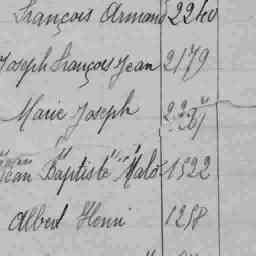 François Armand 2240
Joseph François Jean 2179
Marie Joseph
Jean Baptiste Malo 1522
Albert Henri 1258